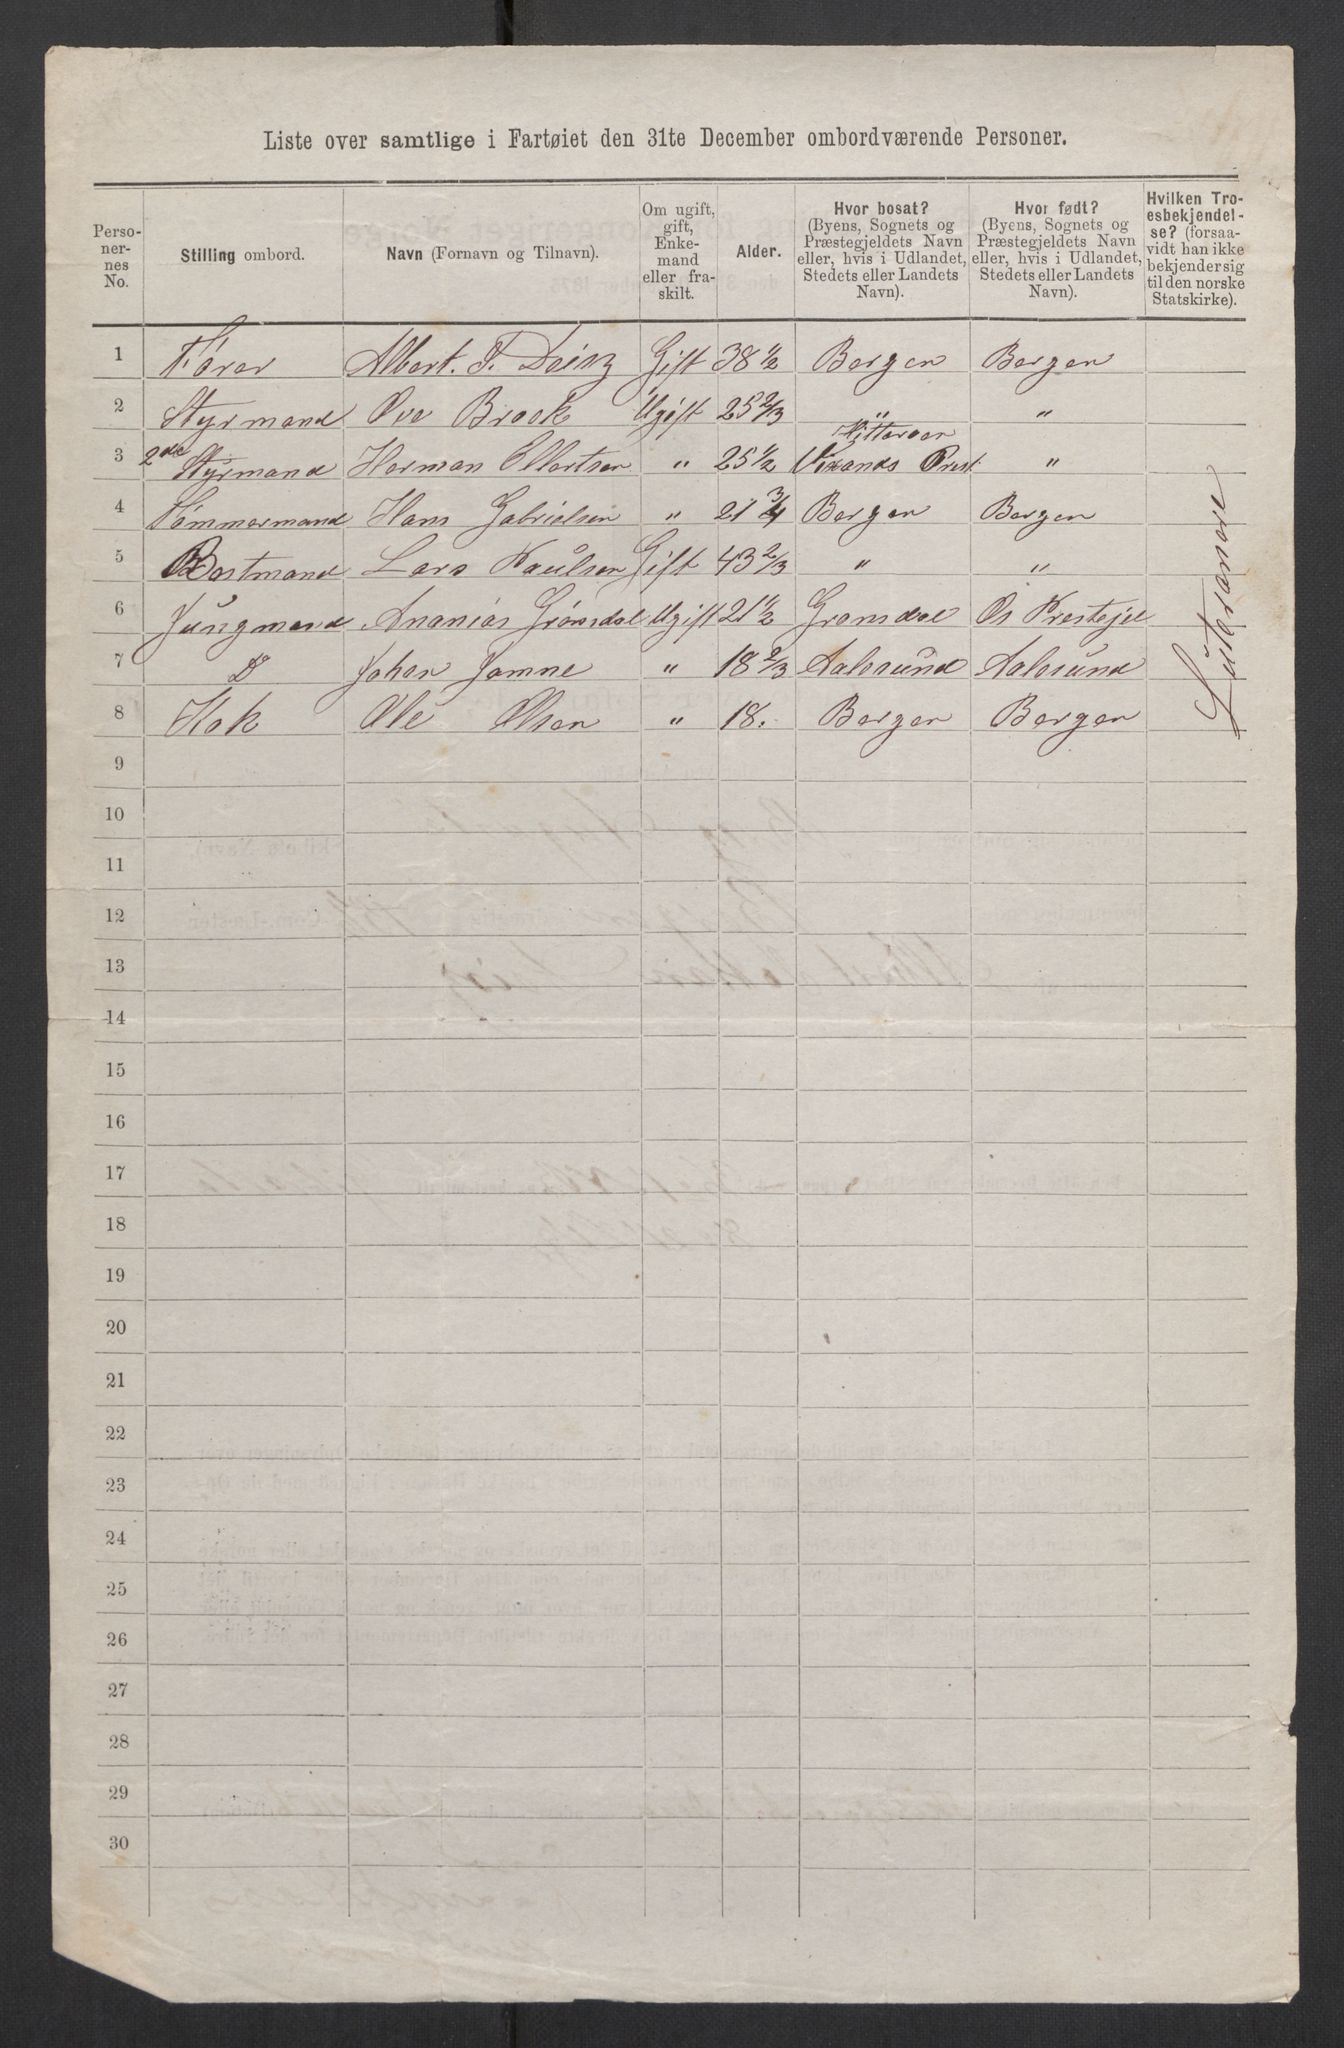 Liste over samtlige i Fartøiet den 31te December ombordværende Personer.
Personernes No. | Stilling ombord. | Navn (Fornavn og Tilnavn). | Om ugift, gift, Enkemand eller fraskilt. | Alder. | Hvor bosat? (Byens, Sognets og Præstegjeldets Navn eller, hvis i Udlandet, Stedets eller Landets Navn). | Hvor født? (Byens, Sognets og Præstegjeldets Navn eller, hvis i Udlandet, Stedets eller Landets Navn). | Hvilken Troesbekjendelse? (forsaavidt han ikke bekjender sig til den norske Statskirke).
1 Fører Albert. T. Deinz Gift 38 1/2 Bergen Bergen
2 Styrmand Ove Brock Ugift 25 2/3 " "
3 2den Styrmand Herman Ellertsen " 25 1/2 Hitteroen Prest "
4 Tømmermand Hans Gabrielsen " 21 3/4 Bergen Bergen
5 Bostmand Lars Paulsen Gift 43 2/3 " "
6 Jungmand Ananias Grønsdal Ugift 21 1/2 Gronsdal Os Prestejel
7 D Johan Jamne " 18 2/3 Aalesund Aalesund
8 Kok Ole Olsen " 18. Bergen Bergen
Lutheranere
9
10
11
12
13
14
15
16
17
18
19
20
21
22
23
24
25
26
27
28
29
30